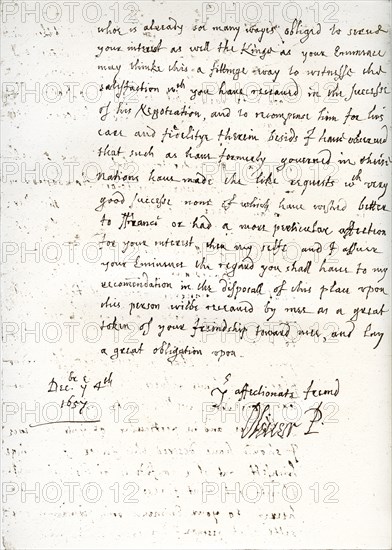 who is already soe many wayes obliged to serve
your interest as well the Kings as your Eminence
may thinke this a fitting way to witnesse the
satisfaction wth you have receaued in the successe
of his Negotiation, and to recompence him for his
care and fidelitye therein besids I have observed
that such as have formerly governed in theise
nations have made the like requests wth very
good successe none of which have wished better
to France or had a more particular affection
for your interest then my selfe and I assure
your Eminence the regard you shall have to my
recomendation in the disposall of this place upon
this person wilbe receaued by mee as a great
token of your freindship toward mee, and lay
a great obligation upon
Decbr ye 4th
1657
Yr affectionate freind
Oliver P.
PHOTO 12